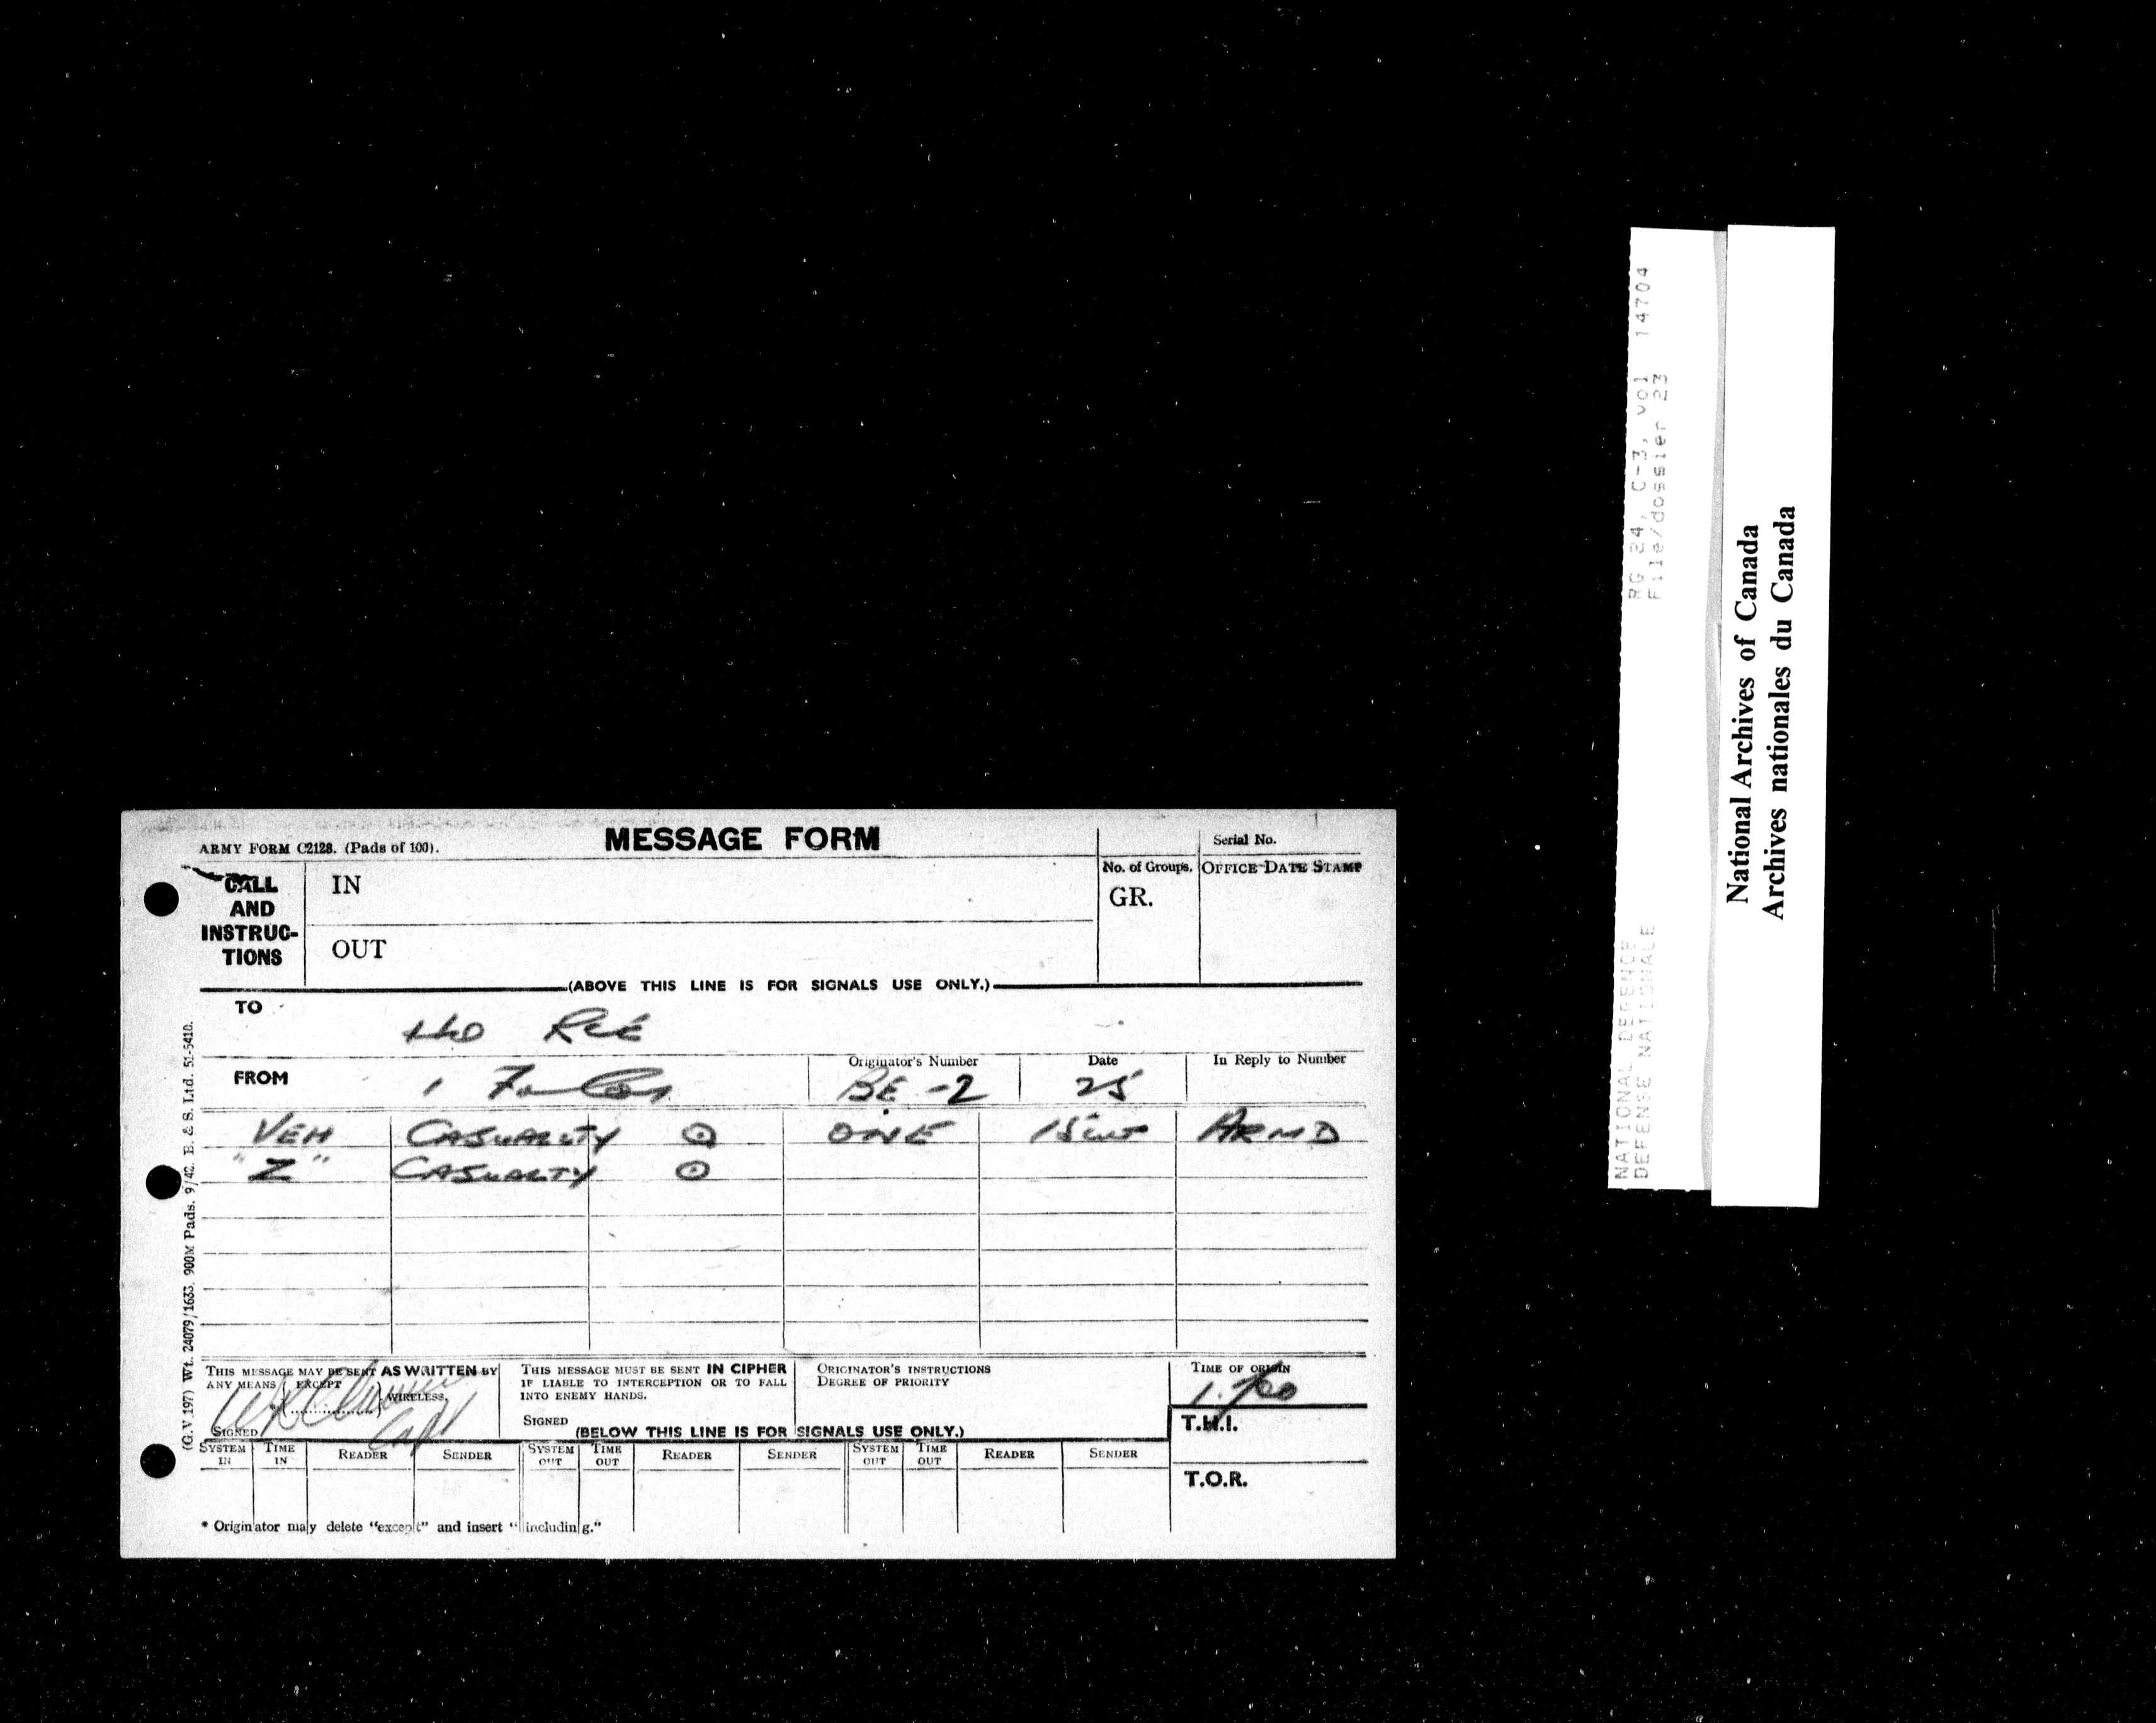 ARMY FORM C2128. (Pads of 100).
MESSAGE FORM
Serial No.
CALL AND INSTRUC-TIONS
IN
OUT
No. of Groups.
GR.
OFFICE DATE STAMP
(ABOVE THIS LINE IS FOR SIGNALS USE ONLY.)
TO
RCE
FROM
1
Originator's Number
BE-2
Date
25
In Reply to Number
VEH CASUALTY ⊙ ONE 15 cwt ARMD
"Z" CASUALTY ⊙
THIS MESSAGE MAY BE SENT AS WRITTEN BY
ANY MEANS EXCEPT
WIRELESS.
SIGNED
Capt
THIS MESSAGE MUST BE SENT IN CIPHER
IF LIABLE TO INTERCEPTION OR TO FALL
INTO ENEMY HANDS.
SIGNED
ORIGINATOR'S INSTRUCTIONS
DEGREE OF PRIORITY
TIME OF ORIGIN
T.H.I.
T.O.R.
(BELOW THIS LINE IS FOR SIGNALS USE ONLY.)
SYSTEM IN TIME IN READER SENDER SYSTEM OUT TIME OUT READER SENDER SYSTEM OUT TIME OUT READER SENDER
* Originator may delete "except" and insert "including."
(G.V 197) Wt. 24079/1633. 900M Pads. 9/42. B. & S. Ltd. 51-5410.
NATIONAL DEFENCE RG 24, C-3, vol 14704
DEFENSE NATIONALE File/dossier 23
National Archives of Canada
Archives nationales du Canada